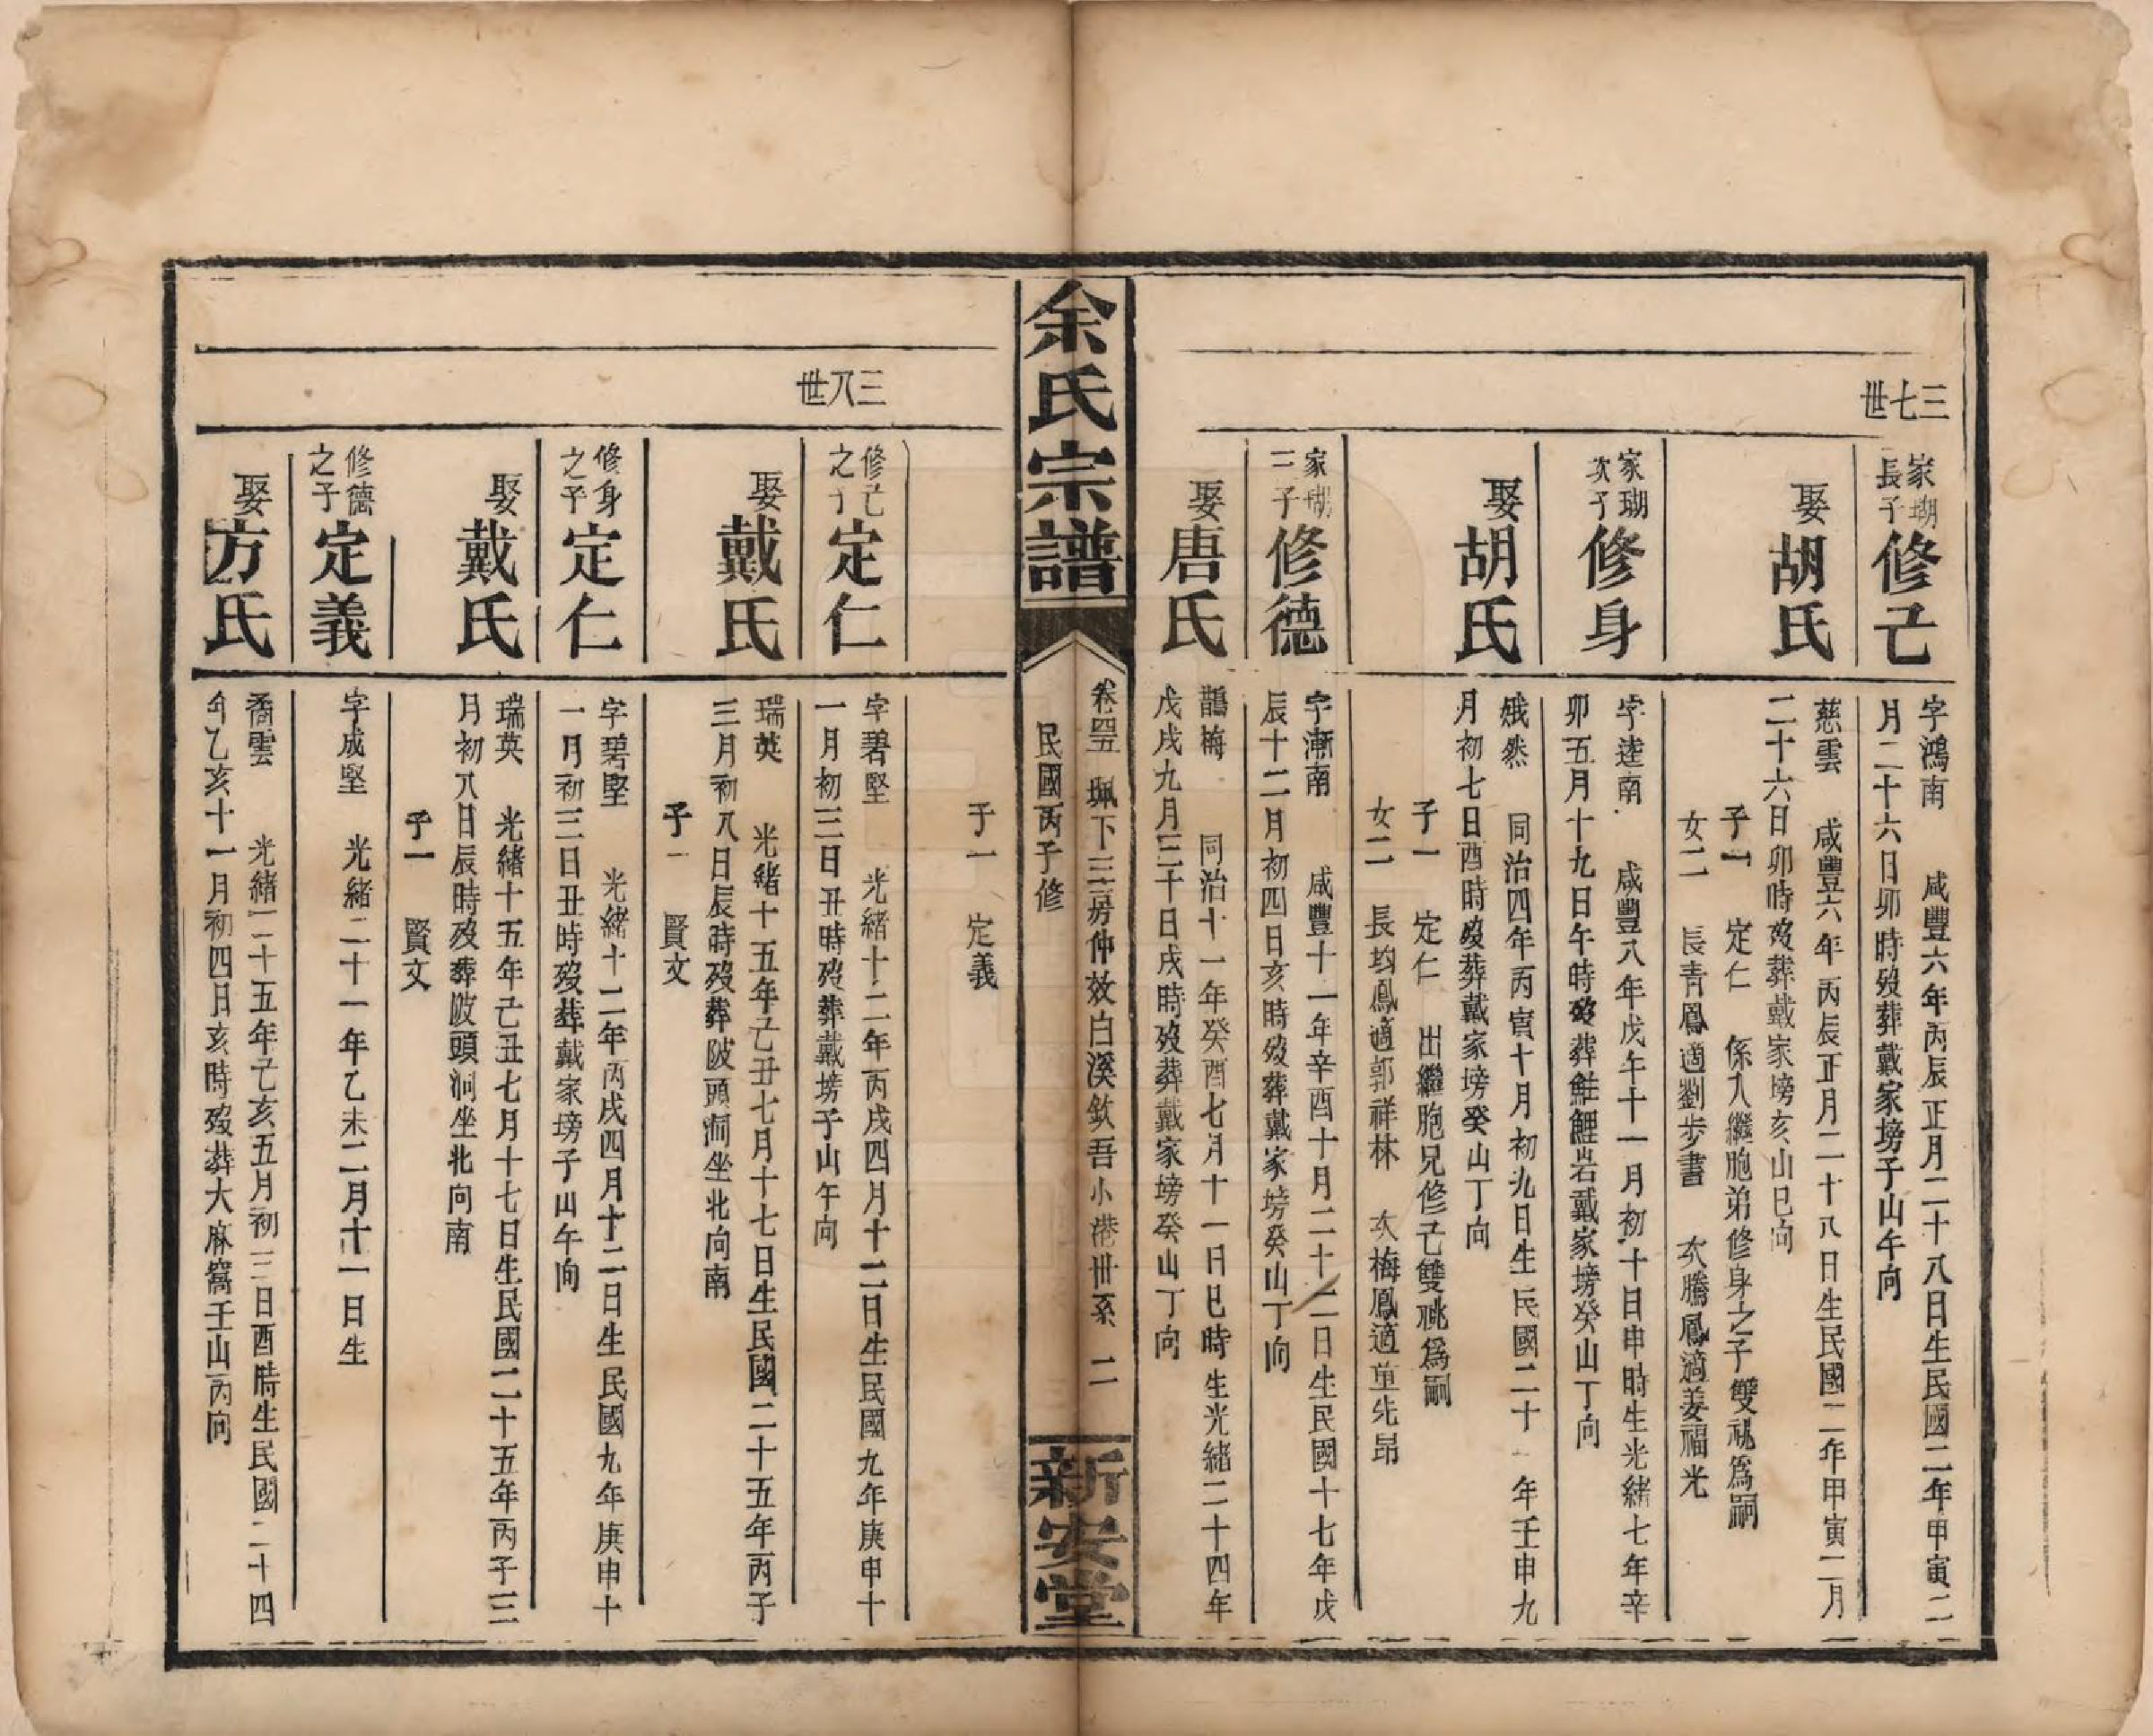 三七世
家瑚長子 修己
字鴻南 咸豐六年丙辰正月二十八日生民國二年甲寅二
月二十六日卯時歿葬戴家塝子山午向
娶胡氏
慈雲 咸豐六年丙辰正月二十八日生民國二年甲寅二月
二十六日卯時歿葬戴家塝亥山巳向
子一 定仁 係入繼胞弟修身之子雙祧為嗣
女二 長青鳳適劉步書 次騰鳳適姜福光
家瑚次子 修身
字達南 咸豐八年戊午十一月初十日申時生光緒七年辛
卯五月十九日午時歿葬鮭鯉岩戴家塝癸山丁向
娶胡氏
娥然 同治四年丙寅十月初九日生民國二十一年壬申九
月初七日酉時歿葬戴家塝癸山丁向
子一 定仁 出繼胞兄修己雙祧為嗣
女二 長均鳳適郭祥林 次梅鳳適童先昂
家瑚三子 修德
字漸南 咸豐十一年辛酉十月二十二日生民國十七年戊
辰十二月初四日亥時歿葬戴家塝癸山丁向
娶唐氏
鵲梅 同治十一年癸酉七月十一日巳時生光緒二十四年
戊戌九月三十日戌時歿葬戴家塝癸山丁向
余氏宗譜
卷四五 珮下三房仲效白溪欽吾小港卅系 二
民國丙子修
新安堂
子一 定義
三八世
修己之子 定仁
字碧堅 光緒十二年丙戌四月十二日生民國九年庚申十
一月初三日丑時歿葬戴塝子山午向
娶戴氏
瑞英 光緒十五年己丑七月十七日生民國二十五年丙子
三月初八日辰時歿葬陂頭洞坐北向南
子一 賢文
修身之子 定仁
字碧堅 光緒十二年丙戌四月十二日生民國九年庚申十
一月初三日丑時歿葬戴家塝子山午向
娶戴氏
瑞英 光緒十五年己丑七月十七日生民國二十五年丙子三
月初八日辰時歿葬陂頭洞坐北向南
子一 賢文
修德之子 定義
字成堅 光緒二十一年乙未二月十一日生
娶方氏
喬雲 光緒二十五年己亥五月初三日酉時生民國二十四
年乙亥十一月初四日亥時歿葬大麻窩壬山丙向